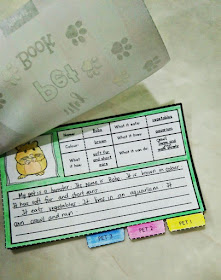 Book
pet
Name: What it eats: vegetables
Colour: brown What it lives: aquarium
What it has: soft fur and short ears What it can do:
My pet is a hamster. Its name is It is brown in colour.
It has soft fur and short ears.
It eats vegetables. It lives in an aquarium. It
can crawl and run.
PET 3 PET 2 PET 1